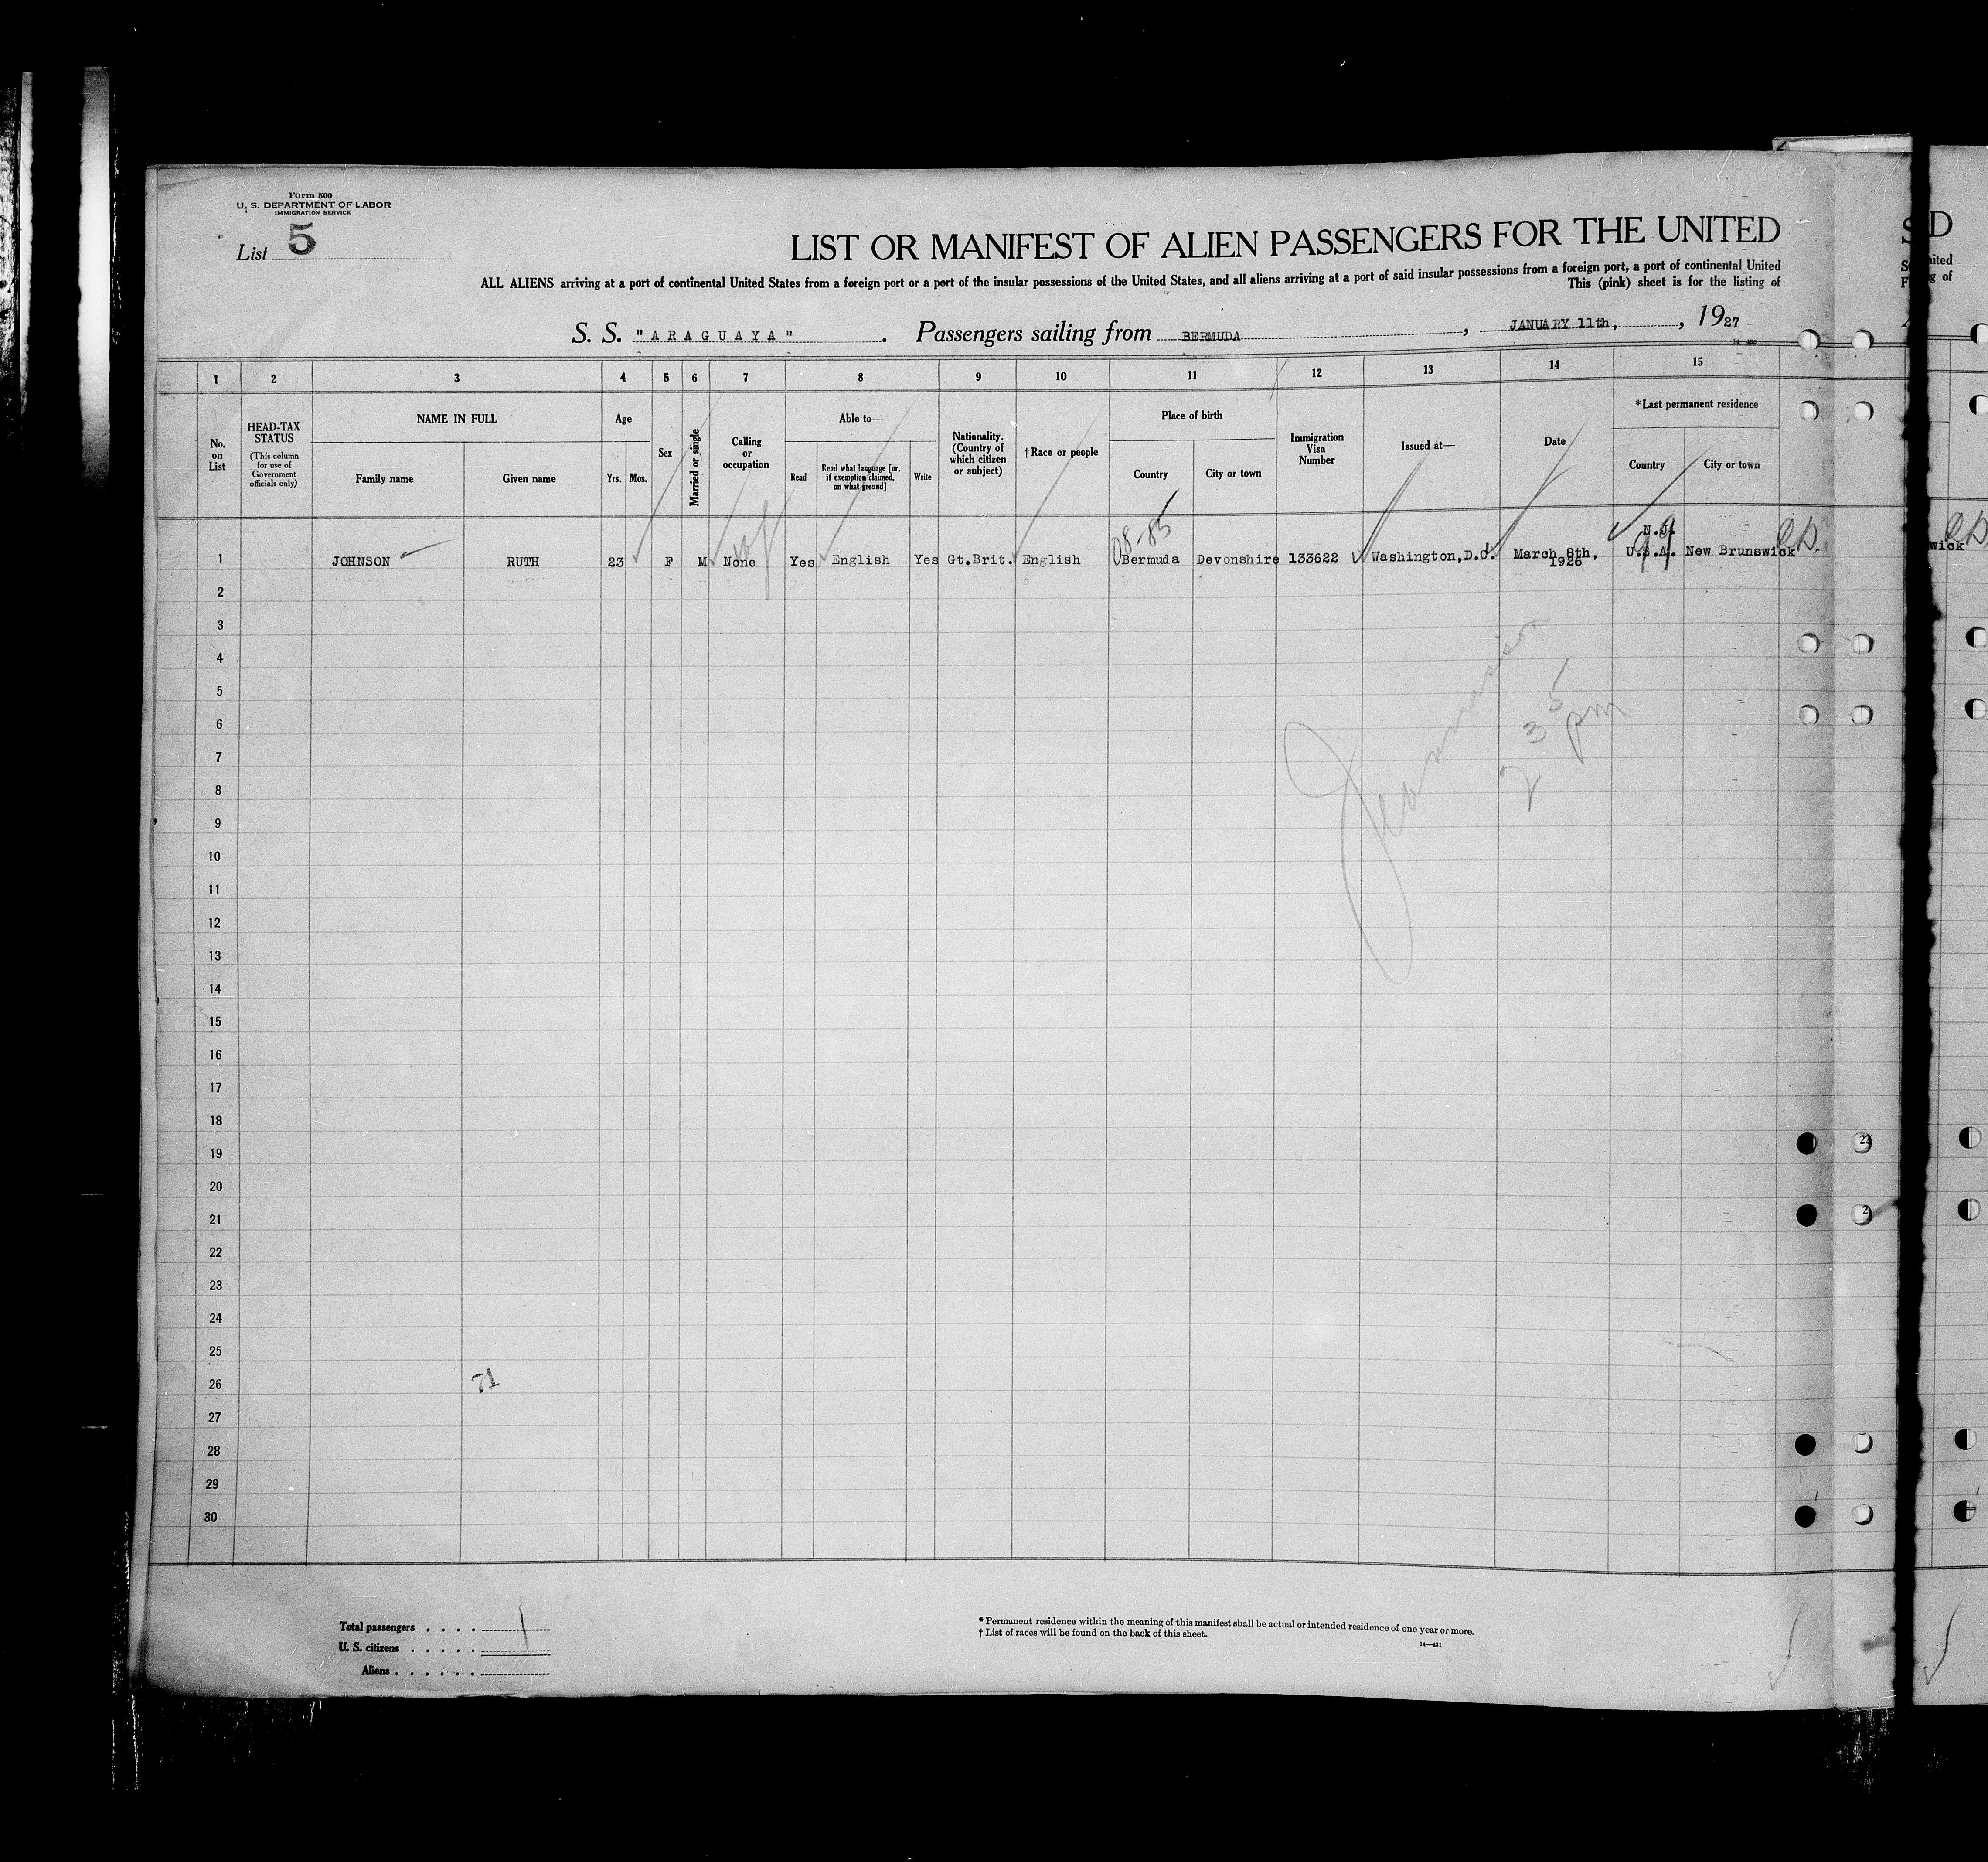 Form 500
U. S. DEPARTMENT OF LABOR
IMMIGRATION SERVICE
List 5
LIST OR MANIFEST OF ALIEN PASSENGERS FOR THE UNITED
ALL ALIENS arriving at a port of continental United States from a foreign port or a port of the insular possessions of the United States, and all aliens arriving at a port of said insular possessions from a foreign port, a port of continental United
This (pink) sheet is for the listing of
S. S. "ARAGUAYA". Passengers sailing from BERMUDA, JANUARY 11th, , 1927
1 2 3 4 5 6 7 8 9 10 11 12 13 14 15
No. on List
HEAD-TAX STATUS
(This column for use of Government officials only)
NAME IN FULL
Family name Given name
Age
Yrs. Mos.
Sex
Married or single
Calling or occupation
Able to—
Read Read what language [or, if exemption claimed, on what ground] Write
Nationality. (Country of which citizen or subject)
† Race or people
Place of birth
Country City or town
Immigration Visa Number
Issued at—
Date
*Last permanent residence
Country City or town
N.J.
1 JOHNSON RUTH 23 F M None Yes English Yes Gt.Brit. English Bermuda Devonshire 133622 Washington,D.C. March 8th, 1926 U.S.A. New Brunswick
2
3
4
5
6
7
8
9
10
11
12
13
14
15
16
17
18
19
20
21
22
23
24
25
26
27
28
29
30
71
3 5
2 pm
Total passengers . . . . 1
U. S. citizens . . . . .
Aliens . . . . . .
* Permanent residence within the meaning of this manifest shall be actual or intended residence of one year or more.
† List of races will be found on the back of this sheet.
14—431